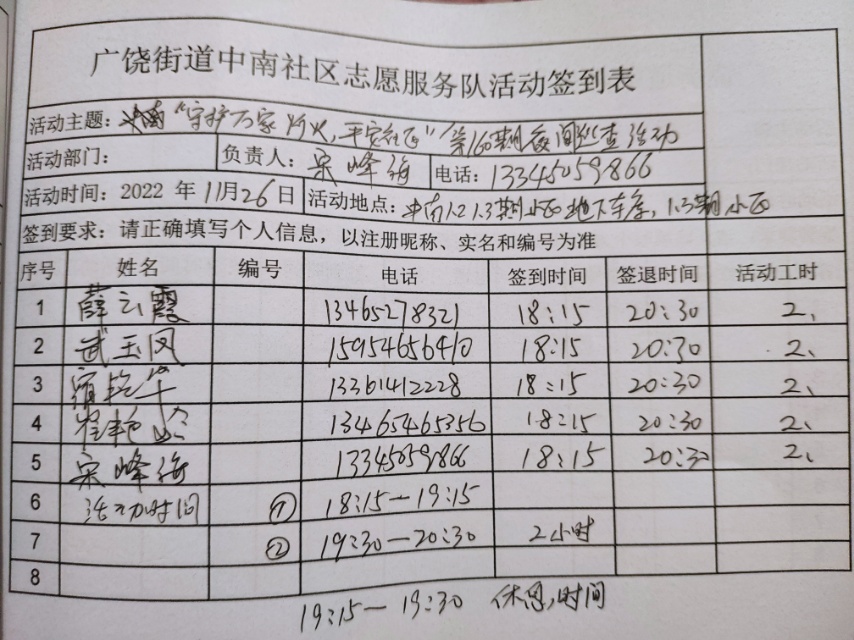 广饶街道中南社区志愿服务队活动签到表
活动主题: "守护万家灯火,平安社区"第160期夜间巡查活动
活动部门: 负责人: 宋峰海 电话: 13345059866
活动时间: 2022 年 11月26日 活动地点: 中南1.2 1.3期小区地下车库,1.3期小区
签到要求: 请正确填写个人信息,以注册昵称、实名和编号为准
序号 姓名 编号 电话 签到时间 签退时间 活动工时
1 薛云霞 13465278321 18:15 20:30 2、
2 武玉凤 15954656410 18:15 20:30 2、
3 13361412228 18:15 20:30 2、
4 崔艳 13465465356 18:15 20:30 2、
5 宋峰海 13345059866 18:15 20:30 2、
6 活动时间 ① 18:15—19:15
7 ② 19:30—20:30 2小时
8
19:15—19:30 休息时间